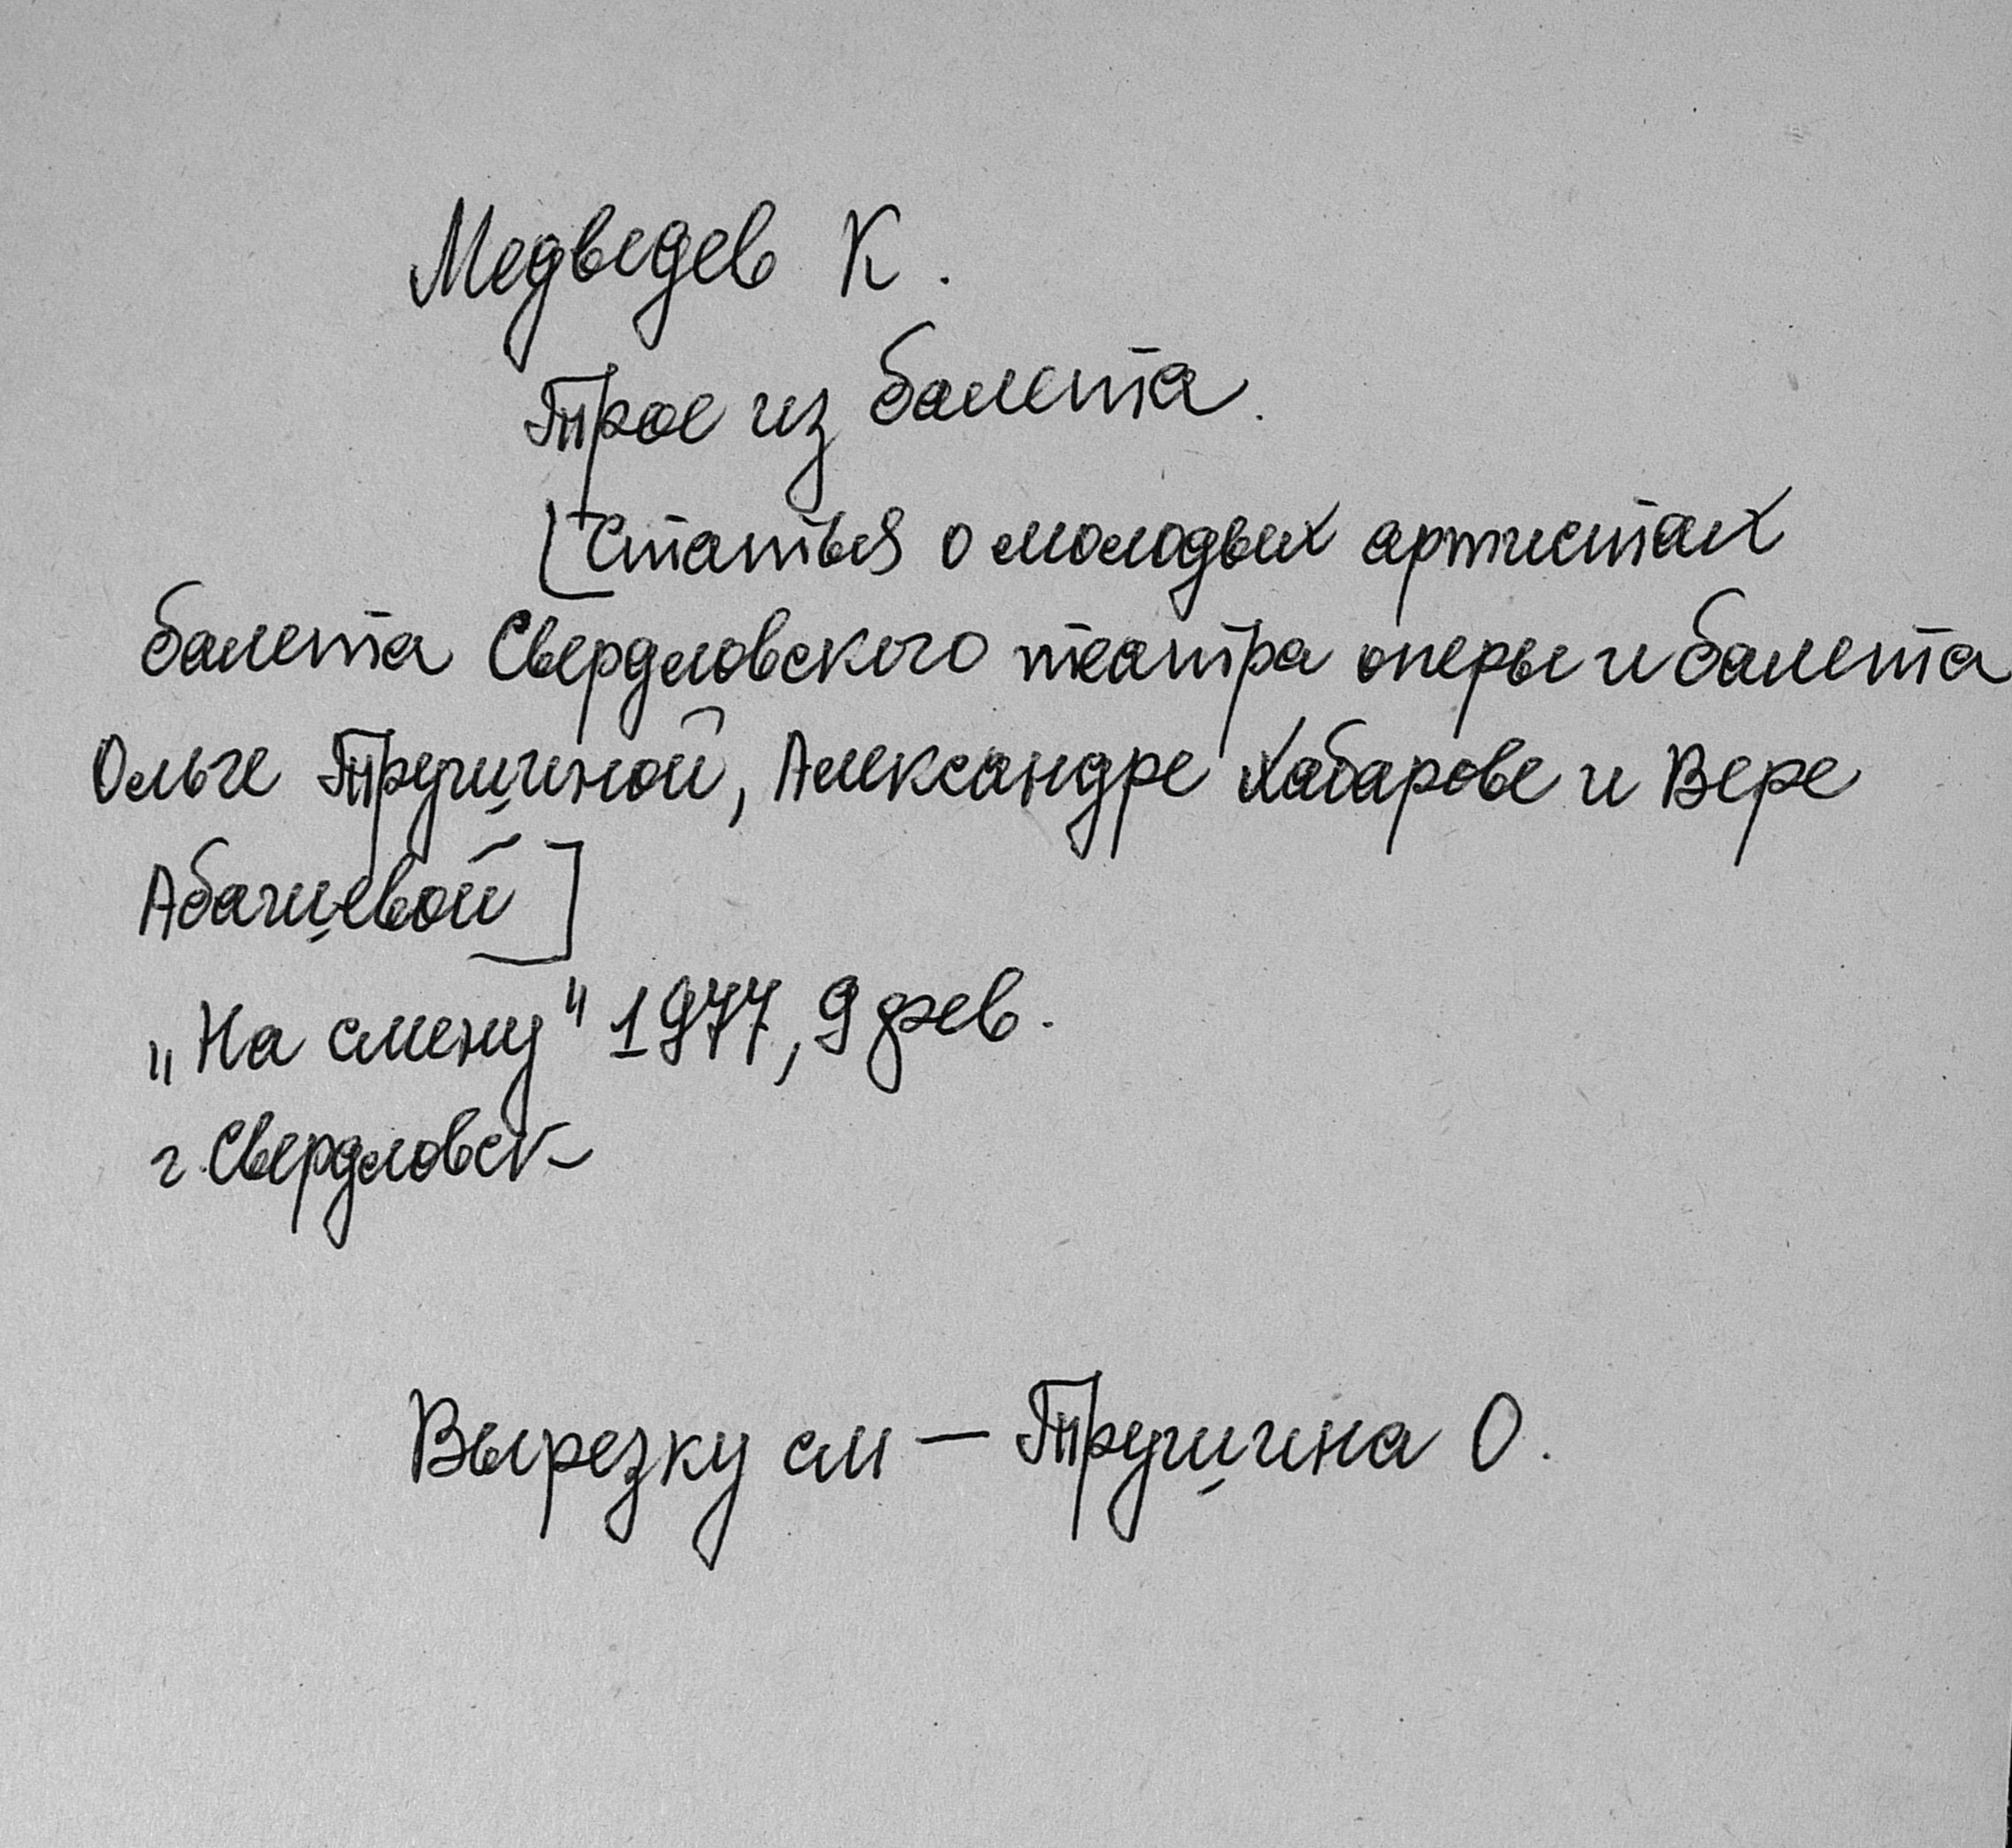 Медведев К.
Трое из балета.
[Статья о молодых артистах
балета Свердловского театра оперы и балета
Ольге Трушиной, Александре Хабарове и Вере
Абашевой]
„На смену" 1977, 9 фев.
г. Свердловск
Вырезку см — Трушина О.